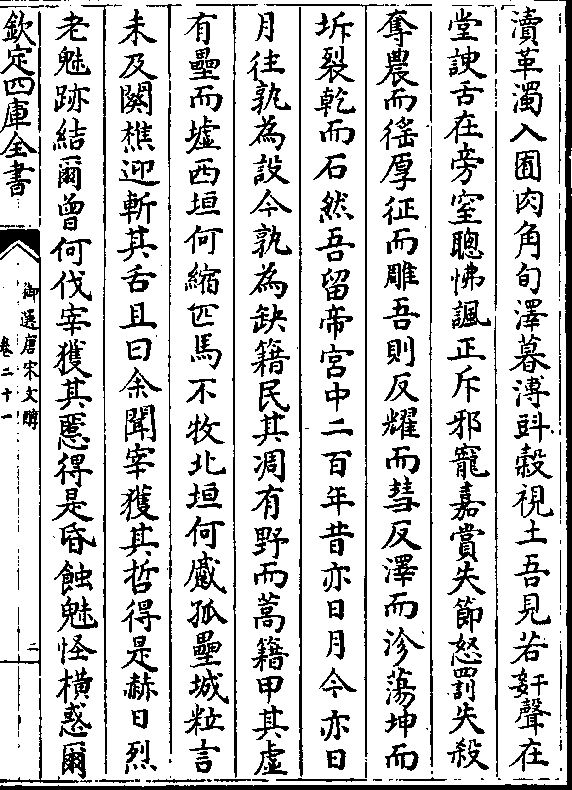 瀆革濁入囿肉角旬澤暮溥㪷糓視土吾見若奸聲在
堂諛舌在旁窒聰怫諷正斥邪寵嘉賞失節怒罰失殺
奪農而徭厚征而雕吾則反耀而彗反澤而沴蕩坤而
坼裂乾而石然吾留帝宫中二百年昔亦日月今亦日
月往孰為設今孰為缺籍民其凋有野而蒿籍甲其虚
有壘而墟西垣何縮匹馬不牧北垣何蹙孤壘城粒言
未及闋樵迎斬其舌且曰余聞宰獲其哲得是赫日烈
老魅跡結爾曾何伐宰獲其慝得是昏蝕魅怪横惑爾
欽定四庫全書
御選唐宋文醇
卷二十一
二